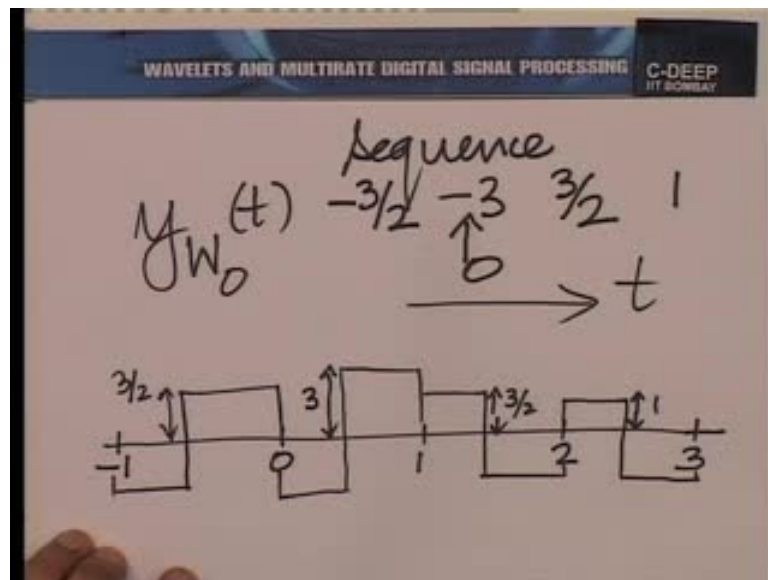 WAVELETS AND MULTIRATE DIGITAL SIGNAL PROCESSING
C-DEEP
IIT BOMBAY
sequence
y_{W_0}(t) -3/2 -3 3/2 1
↑
0
→ t
3/2 3 3/2 1
-1 0 1 2 3